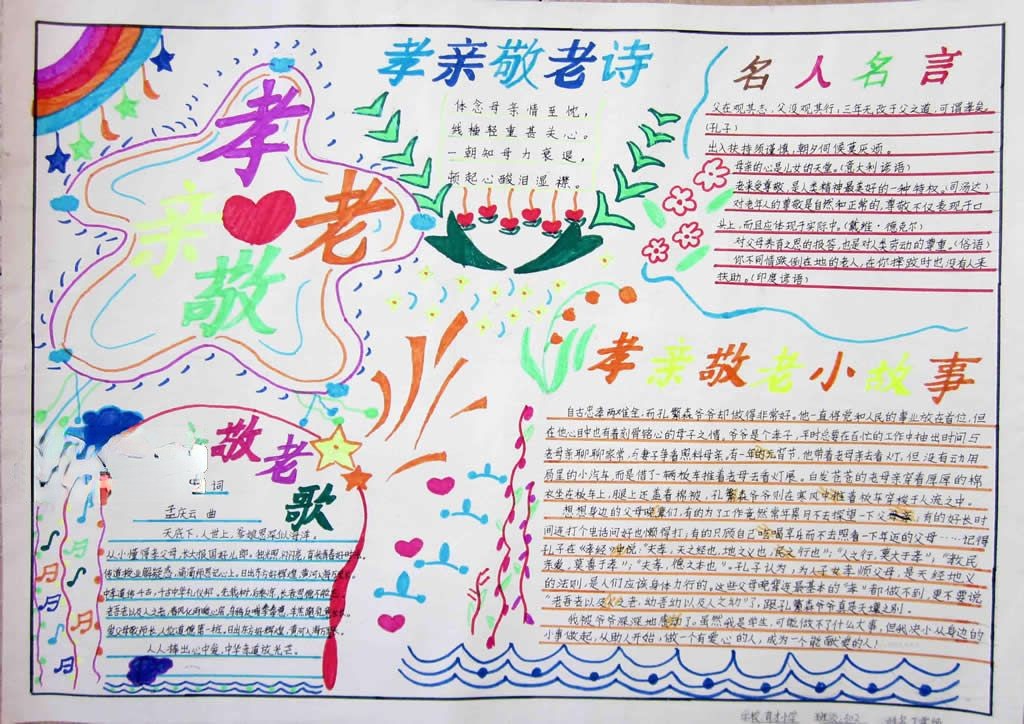 孝
亲
老
敬
孝亲敬老诗
体念母亲情至忱，
线柚轻重甚关心。
一朝知母力衰退，
顿起心酸泪湿襟。
名人名言
父在观其志，父没观其行，三年无改于父之道，可谓孝矣。
(孔子)
出入扶持须谨慎，朝夕伺候莫厌烦。
母亲的心是儿女的天堂。(意大利谚语)
老来受尊敬，是人类精神最美好的一种特权。(司汤达)
对老年人的尊敬是自然和正常的，尊敬不仅表现于口
头上，而且应体现于实际中。(戴维·德克尔)
对父母养育之恩的报答，也是对人类劳动的尊重。(俗语)
你不同情跌倒在地的老人，在你摔跤时也没有人来
扶助。(印度谚语)
孝亲敬老小故事
自古忠孝两难全，而孔繁森爷爷却做得非常好。他一直将党和人民的事业放在首位，但
在他心目中也有着刻骨铭心的母子之情。爷爷是个孝子，平时总要在百忙的工作中抽出时间与
老母亲聊聊家常，与妻子争着照料母亲，有一年的元宵节，他带着老母亲去看灯，但没有动用
局里的小汽车，而是借了一辆板车推着老母去看灯展。白发苍苍的老母亲穿着厚厚的棉
衣坐在板车上，腿上还盖着棉被，孔繁森爷爷则在寒风中推着板车穿梭于人流之中。
想想身边的父母晚辈们，有的为了工作竟然常年累月不去探望一下父母亲；有的好长时
间连打个电话问好也懒得打；有的只顾自己吃喝享乐而不去照看一下年迈的父母……记得
孔子在《孝经》中说：“夫孝，天之经也，地之义也，民之行也”；“人之行，莫大于孝”，“教民
亲爱，莫善于孝”；“夫孝，德之本也”。孔子认为，为人子女孝顺父母，是天经地义
的法则，是人们应该身体力行的，这些父母晚辈连最基本的“孝”都做不到，更不要说
“老吾老以及人之老，幼吾幼以及人之幼”了，跟孔繁森爷爷真是天壤之别。
我被爷爷深深地感动了。虽然我是学生，可能做不了什么大事，但我决心从身边的
小事做起，从助人开始，做一个有爱心的人，成为一个能献爱的人！
敬老歌
词
孟庆云 曲
天底下，人世上，爹娘恩深似海洋。
从小懂得孝父母，长大报国好儿郎。
传道授业解疑惑，
中华孝道传千古，
老吾老以及人之老，
爱父母敬师长
人人捧出心中爱，中华孝道放光芒。
学校 育才小学 班级